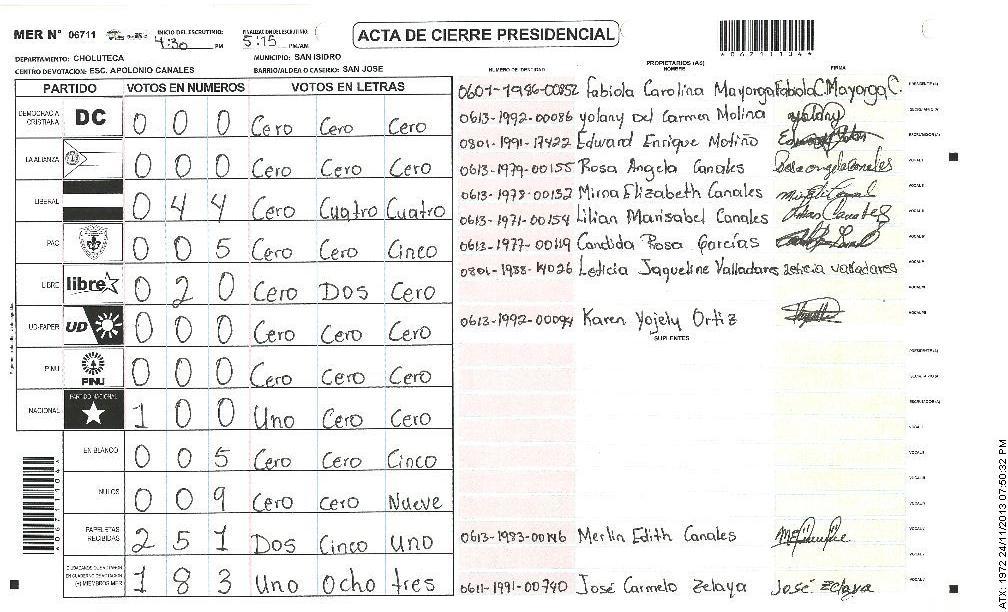 MER N° 06711 INICIO DEL ESCRUTINIO: 4:30 PM FINALIZACION DE ESCRUTINIO: 5:15 PM/AM ACTA DE CIERRE PRESIDENCIAL
A067111044
DEPARTAMENTO: CHOLUTECA MUNICIPIO: SAN ISIDRO
CENTRO DE VOTACION: ESC. APOLONIO CANALES BARRIO/ALDEA O CASERIO: SAN JOSE
PARTIDO VOTOS EN NUMEROS VOTOS EN LETRAS
DEMOCRACIA CRISTIANA DC 0 0 0 Cero Cero Cero
LA ALIANZA 0 0 0 Cero Cero Cero
LIBERAL 0 4 4 Cero Cuatro Cuatro
PAC 0 0 5 Cero Cero Cinco
LIBRE libre 0 2 0 Cero Dos Cero
UD-FAPER UD 0 0 0 Cero Cero Cero
PINU PINU 0 0 0 Cero Cero Cero
NACIONAL PARTIDO NACIONAL 1 0 0 Uno Cero Cero
EN BLANCO 0 0 5 Cero Cero Cinco
NULOS 0 0 9 Cero cero Nueve
PAPELETAS RECIBIDAS 2 5 1 Dos Cinco uno
CIUDADANOS QUE VOTARON EN CUADERNO DE VOTACION (+) MIEMBROS MER 1 8 3 Uno Ocho tres
NUMERO DE IDENTIDAD PROPIETARIOS (AS) NOMBRE FIRMA
0607-1986-00852 Fabiola Carolina Mayorga Fabiola C. Mayorga C. PRESIDENTE (A)
0613-1992-00086 yolany Del Carmen Molina yolany SECRETARIO (A)
0801-1991-17422 Edward Enrique Motiño ESCRUTADOR (A)
0613-1979-00155 Rosa Angela Canales Rosa angela canales VOCAL I
0613-1978-00132 Mirna Elizabeth Canales
0613-1971-00154 Lilian Marisabel Canales
0613-1977-00119 Candida Rosa Garcías
0801-1988-14026 Leticia Jaqueline Valladares leticia valladares
0613-1992-00094 Karen Yojely Ortiz
SUPLENTES
PRESIDENTE (A)
SECRETARIO (A)
ESCRUTADOR (A)
0613-1983-00146 Merlin Edith Canales
0611-1991-00740 José Carmelo Zelaya José Zelaya
ATX 1972 24/11/2013 07:50:32 PM